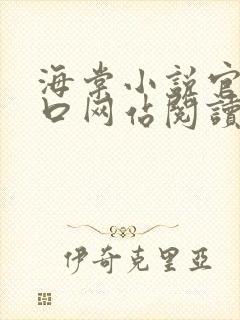 海棠小説官
口网佔閱讀
伊奇克里亞